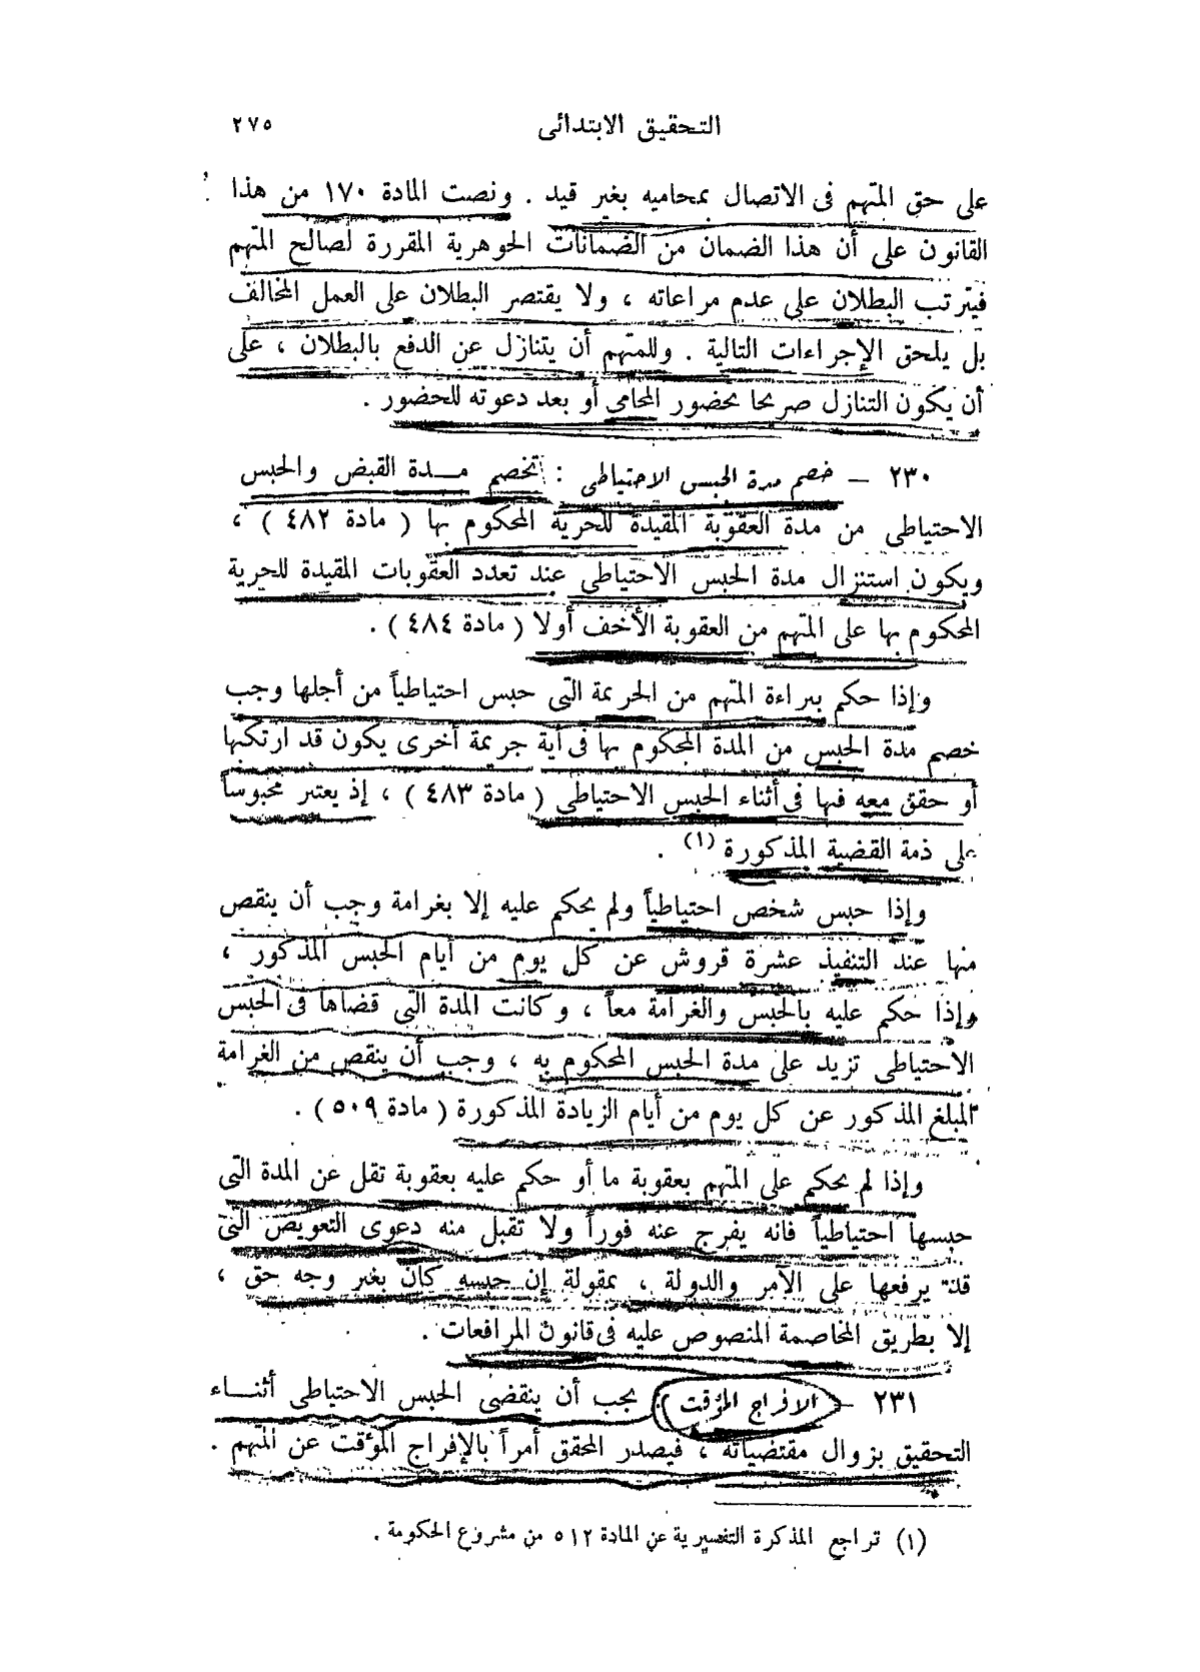 التحقيق الابتدائى ٢٧٥
على حق المتهم فى الاتصال بمحاميه بغير قيد . ونصت المادة ١٧٠ من هذا
القانون على أن هذا الضمان من الضمانات الجوهرية المقررة لصالح المتهم
فيترتب البطلان على عدم مراعاته ، ولا يقتصر البطلان على العمل المخالف
بل يلحق الإجراءات التالية . وللمتهم أن يتنازل عن الدفع بالبطلان ، على
أن يكون التنازل صريحا بحضور المحامى أو بعد دعوته للحضور .
٢٣٠ – خصم مدة الحبس الاحتياطى : تخصم مـــدة القبض والحبس
الاحتياطى من مدة العقوبة المقيدة للحرية المحكوم بها ( مادة ٤٨٢ ) ،
ويكون استنزال مدة الحبس الاحتياطى عند تعدد العقوبات المقيدة للحرية
المحكوم بها على المتهم من العقوبة الأخف أولا ( مادة ٤٨٤ ) .
وإذا حكم ببراءة المتهم من الجريمة التى حبس احتياطياً من أجلها وجب
خصم مدة الحبس من المدة المحكوم بها فى أية جريمة أخرى يكون قد ارتكبها
أو حقق معه فيها فى أثناء الحبس الاحتياطى ( مادة ٤٨٣ ) ، إذ يعتبر محبوساً
على ذمة القضية المذكورة (١) .
وإذا حبس شخص احتياطياً ولم يحكم عليه إلا بغرامة وجب أن ينقص
منها عند التنفيذ عشرة قروش عن كل يوم من أيام الحبس المذكور ،
وإذا حكم عليه بالحبس والغرامة معاً ، وكانت المدة التى قضاها فى الحبس
الاحتياطى تزيد على مدة الحبس المحكوم به ، وجب أن ينقص من الغرامة
المبلغ المذكور عن كل يوم من أيام الزيادة المذكورة ( مادة ٥٠٩ ) .
وإذا لم يحكم على المتهم بعقوبة ما أو حكم عليه بعقوبة تقل عن المدة التى
حبسها احتياطياً فانه يفرج عنه فوراً ولا تقبل منه دعوى التعويض التى
قد يرفعها على الآمر والدولة ، بمقولة إن حبسه كان بغير وجه حق ،
إلا بطريق المخاصمة المنصوص عليه فى قانون المرافعات .
٢٣١ – الافراج المؤقت : يجب أن ينقضى الحبس الاحتياطى أثنـــاء
التحقيق بزوال مقتضياته ، فيصدر المحقق أمراً بالإفراج المؤقت عن المتهم .
(١) تراجع المذكرة التفسيرية عن المادة ٥١٢ من مشروع الحكومة .